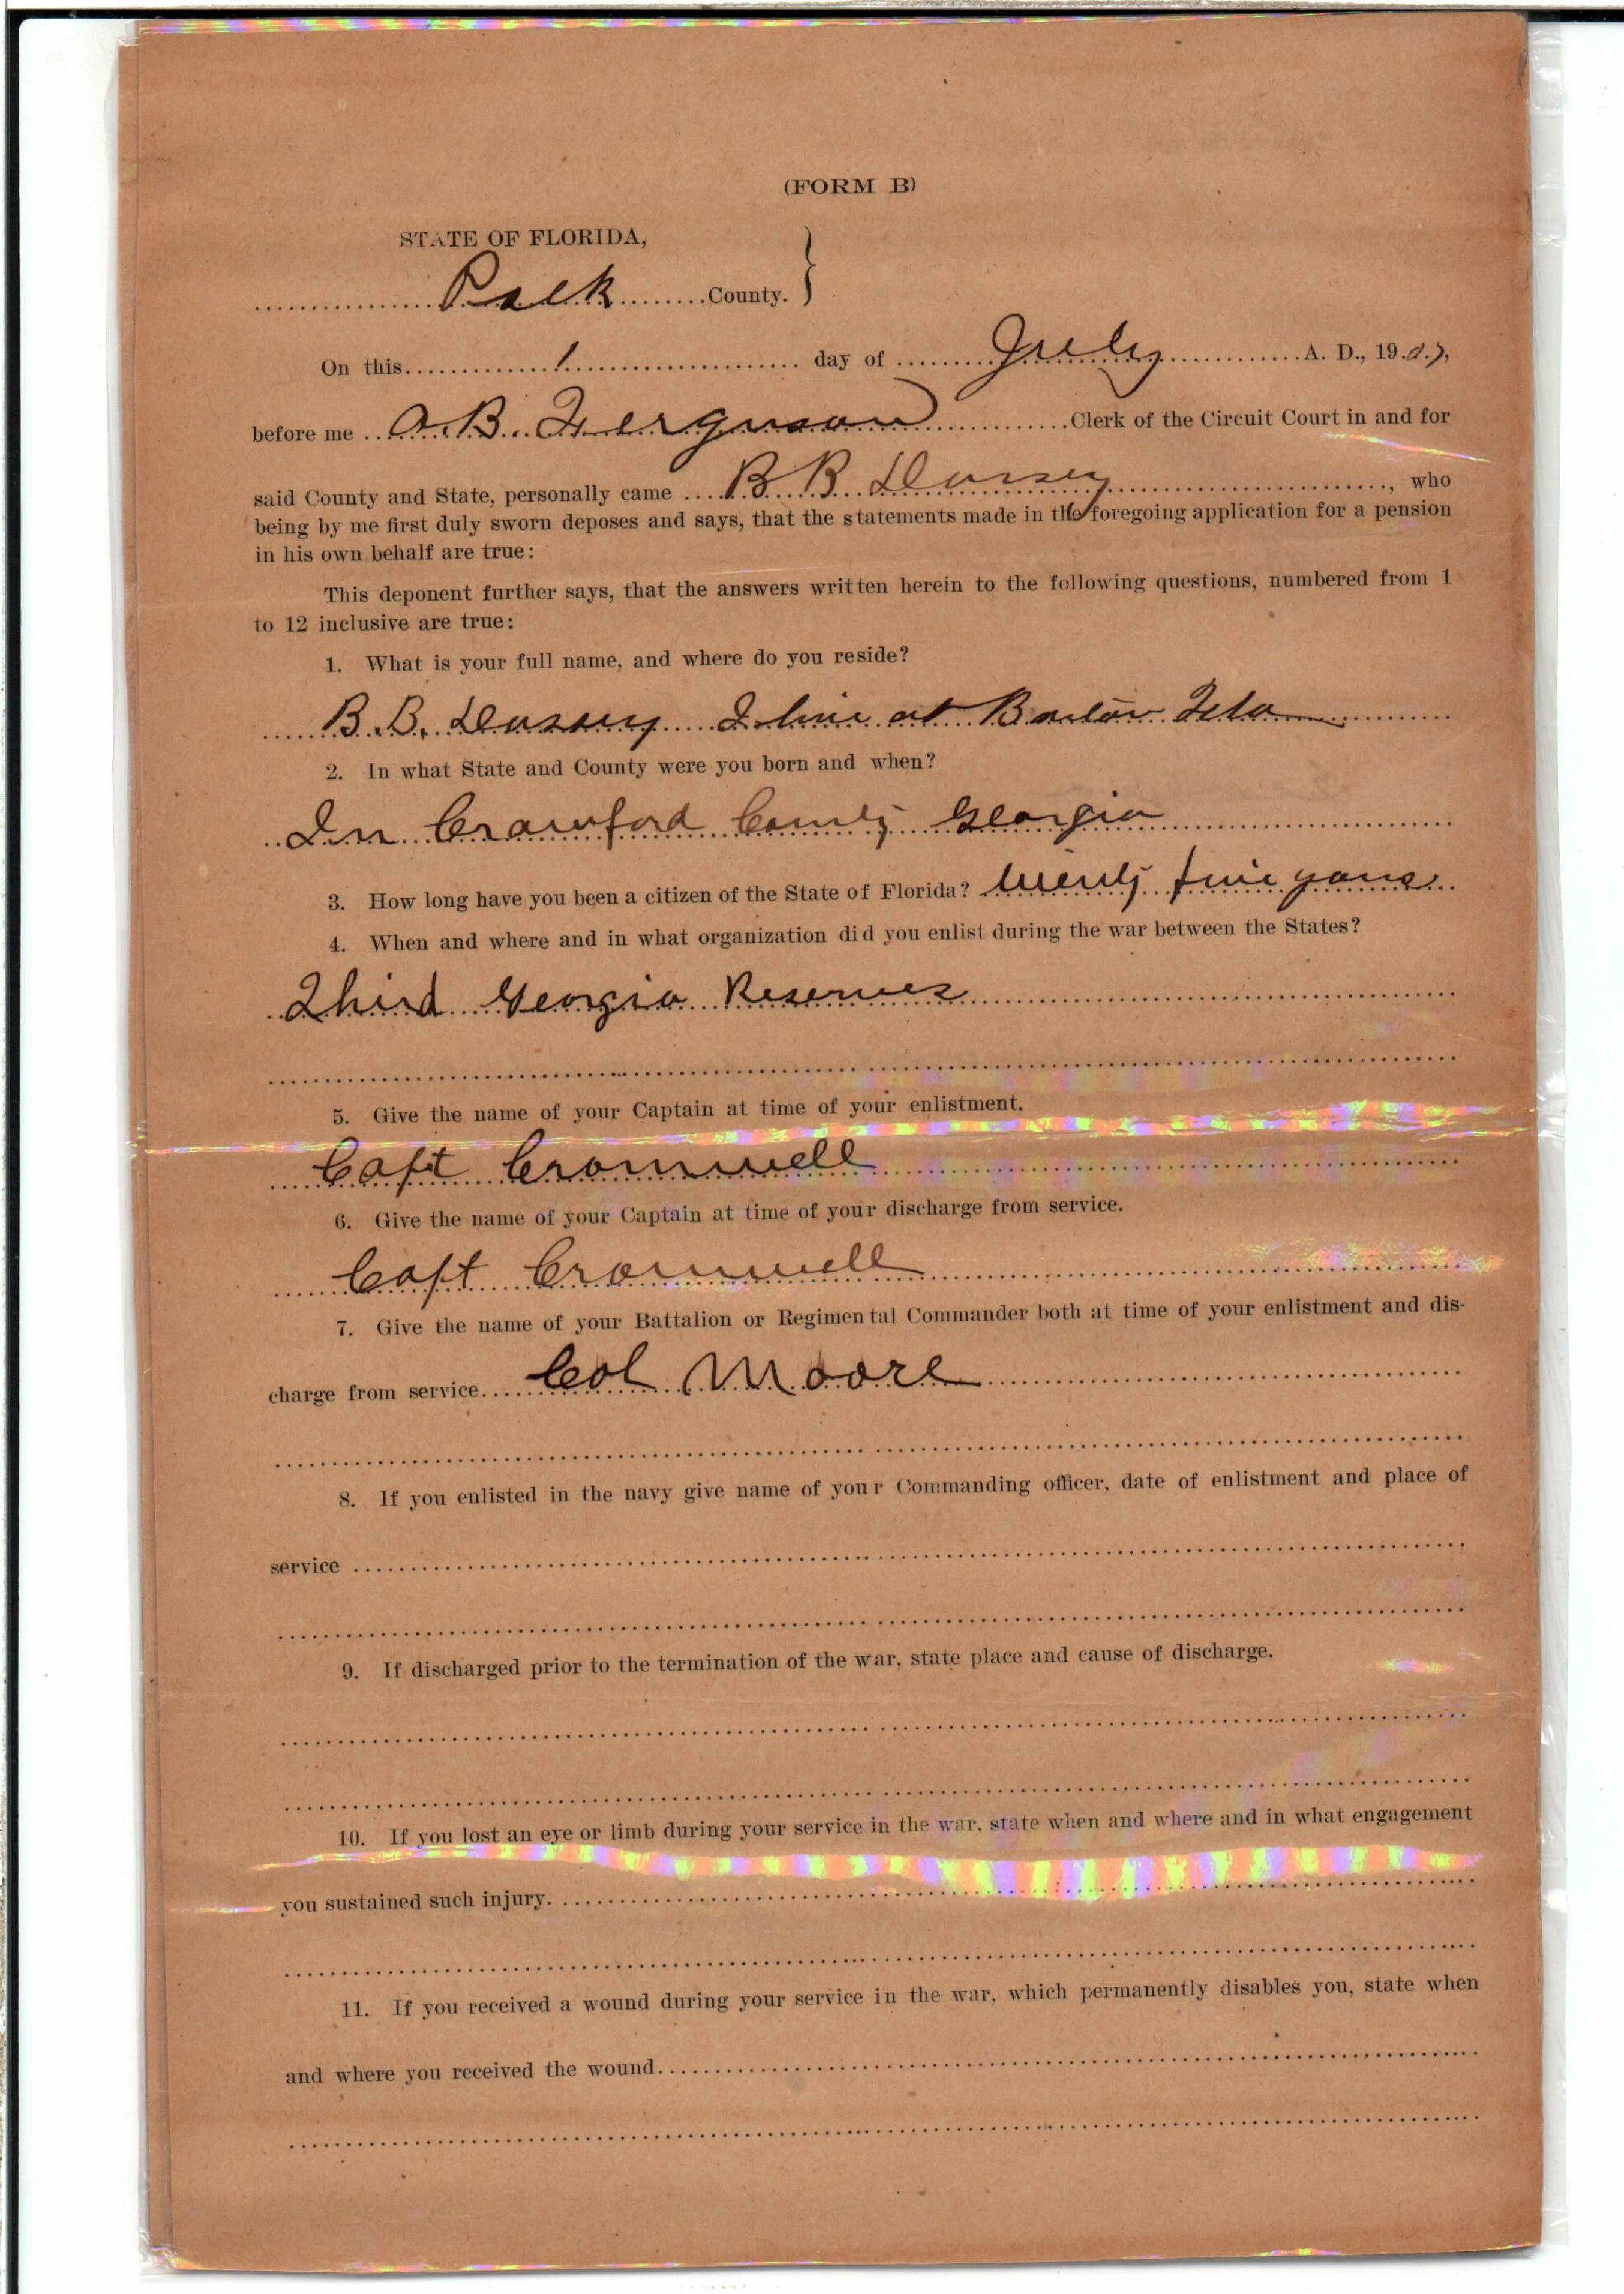 (FORM B)
STATE OF FLORIDA,
Polk County.
On this 1 day of July A. D., 1907,
before me A. B. Ferguson Clerk of the Circuit Court in and for
said County and State, personally came B B Dorsey, who
being by me first duly sworn deposes and says, that the statements made in the foregoing application for a pension
in his own behalf are true:
This deponent further says, that the answers written herein to the following questions, numbered from 1
to 12 inclusive are true:
1. What is your full name, and where do you reside?
B. B. Dorsey I live at Bartow Fla
2. In what State and County were you born and when?
In Crawford County Georgia
3. How long have you been a citizen of the State of Florida? twenty five years
4. When and where and in what organization did you enlist during the war between the States?
Third Georgia Reserves
5. Give the name of your Captain at time of your enlistment.
Capt Cromwell
6. Give the name of your Captain at time of your discharge from service.
Capt Cromwell
7. Give the name of your Battalion or Regimental Commander both at time of your enlistment and dis-
charge from service Col Moore
8. If you enlisted in the navy give name of your Commanding officer, date of enlistment and place of
service
9. If discharged prior to the termination of the war, state place and cause of discharge.
10. If you lost an eye or limb during your service in the war, state when and where and in what engagement
you sustained such injury.
11. If you received a wound during your service in the war, which permanently disables you, state when
and where you received the wound.